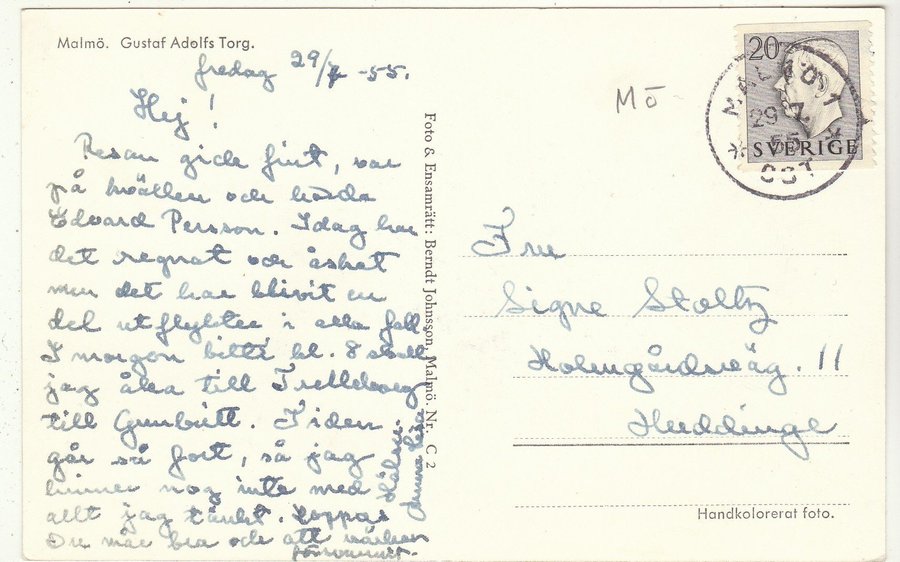 Malmö. Gustaf Adolfs Torg.
fredag 29/7 -55.
Hej!
Resan gick fint, var
på kvällen och hörde
Edvard Persson. Idag har
det regnat och åskat
men det har blivit en
del utflykter i alla fall.
I morgon bitti kl. 8 skall
jag åka till Trelleborg
till Gunbritt. Tiden
går så fort, så jag
hinner nog inte med
allt jag tänkt. Hoppas
Du mår bra och att värken
försvunnit.
Hälsn.
Foto & Ensamrätt: Berndt Johnsson, Malmö. Nr. C 2
Mö
20
SVERIGE
MALMÖ 1
29 7.
55
ÖST
Fru
Signe Stoltz
Holmgårdsväg. 11
Huddinge
Handkolorerat foto.